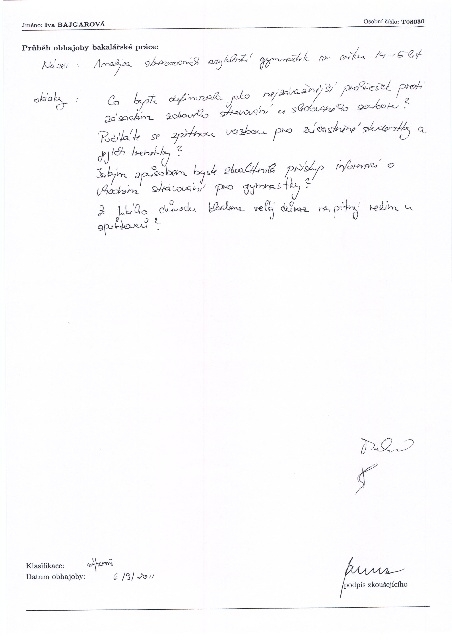 Jméno: Iva BAJGAROVÁ
Osobní číslo: T08080
Průběh obhajoby bakalářské práce:
Název: Analýza stravovacích gymnastek ve věku 14 - 15 let
otázky: Co byste definovala jako nejzávažnější prohřešek proti
zásadám zdravého stravování u sledovaného souboru?
Počítáte se zpětnou vazbou pro zúčastněné sledovatelky a
jejich trenérky?
Jakým způsobem byste zkvalitnila přístup informací o
vhodném stravování pro gymnastky?
Z jakého důvodu kladena velký důraz na pitný režim u
sportovců?
Klasifikace: výborně
Datum obhajoby: 6/9/2011
podpis zkoušejícího